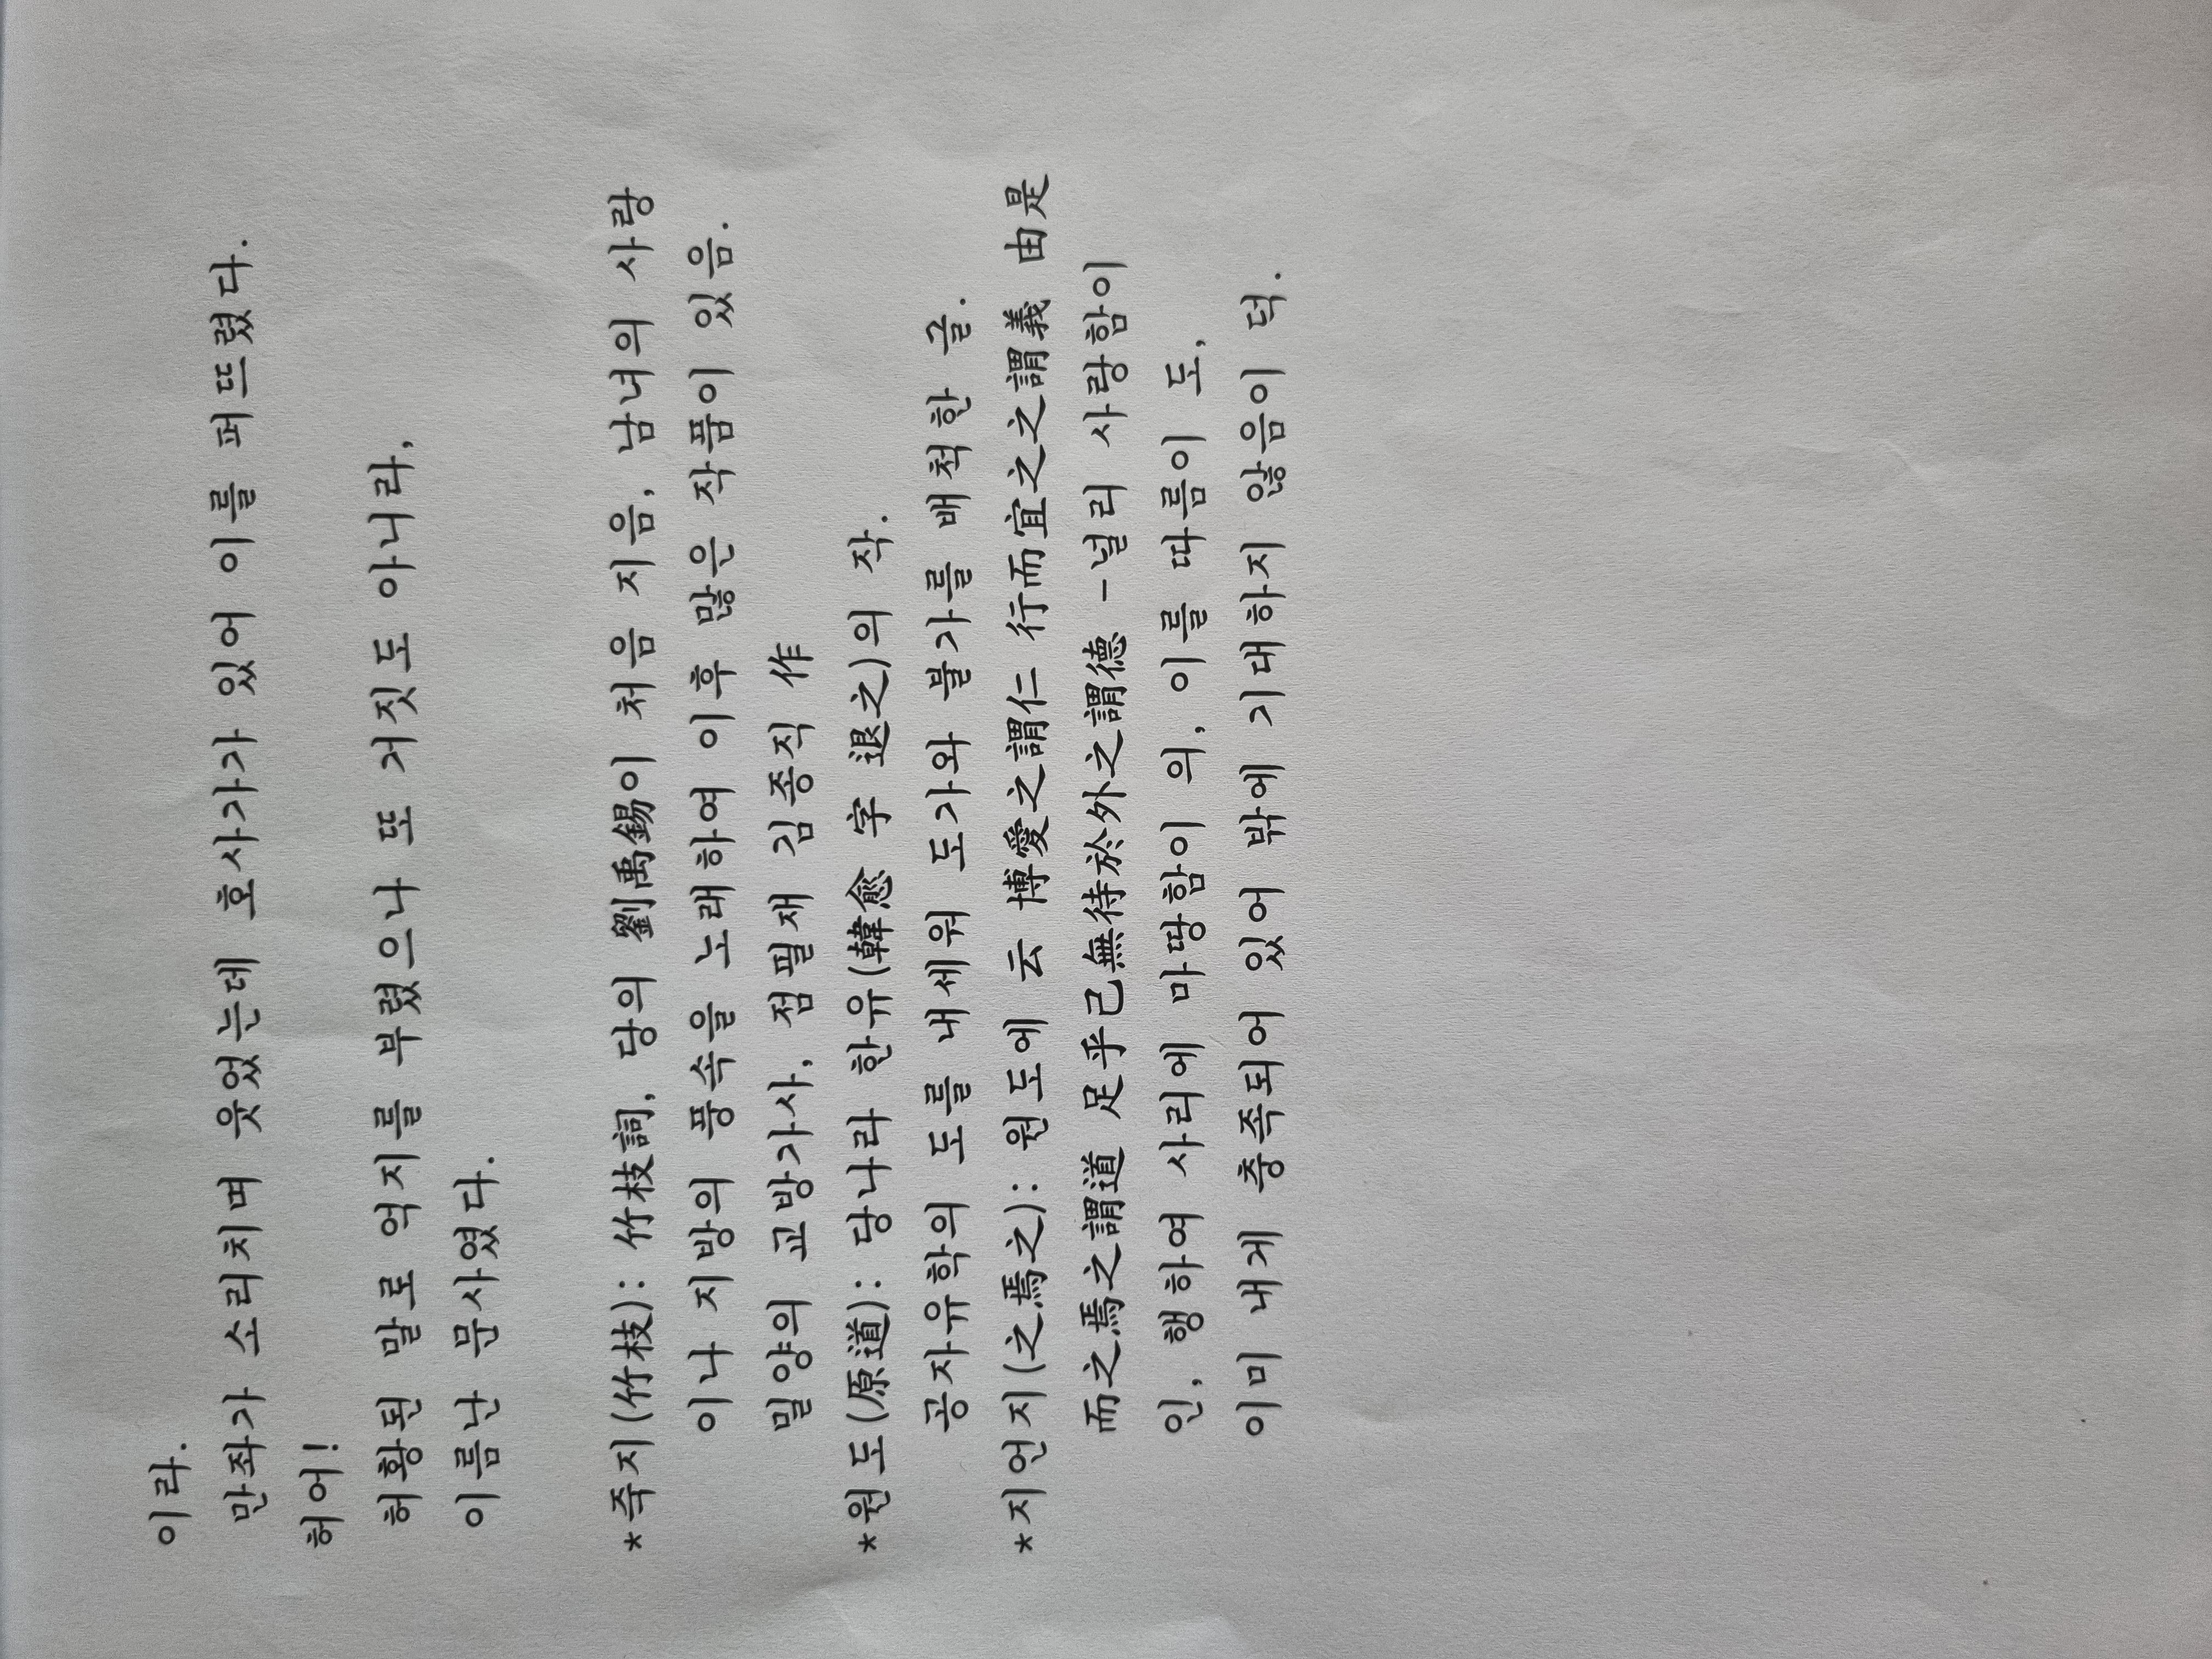 이라.
만좌가 소리치며 웃었는데 호사가가 있어 이를 퍼뜨렸다.
허어!
허황된 말로 억지를 부렸으나 또 거짓도 아니라,
이름난 문사였다.
*죽지(竹枝): 竹枝詞, 당의 劉禹錫이 처음 지음, 남녀의 사랑
이나 지방의 풍속을 노래하여 이후 많은 작품이 있음.
밀양의 교방가사, 점필재 김종직 作
*원도(原道): 당나라 한유(韓愈 字 退之)의 작.
공자유학의 도를 내세워 도가와 불가를 배척한 글.
*지언지(之焉之): 원도에 云 博愛之謂仁 行而宜之之謂義 由是
而之焉之謂道 足乎己無待於外之謂德 -널리 사랑함이
인, 행하여 사리에 마땅함이 의, 이를 따름이 도,
이미 내게 충족되어 있어 밖에 기대하지 않음이 덕.